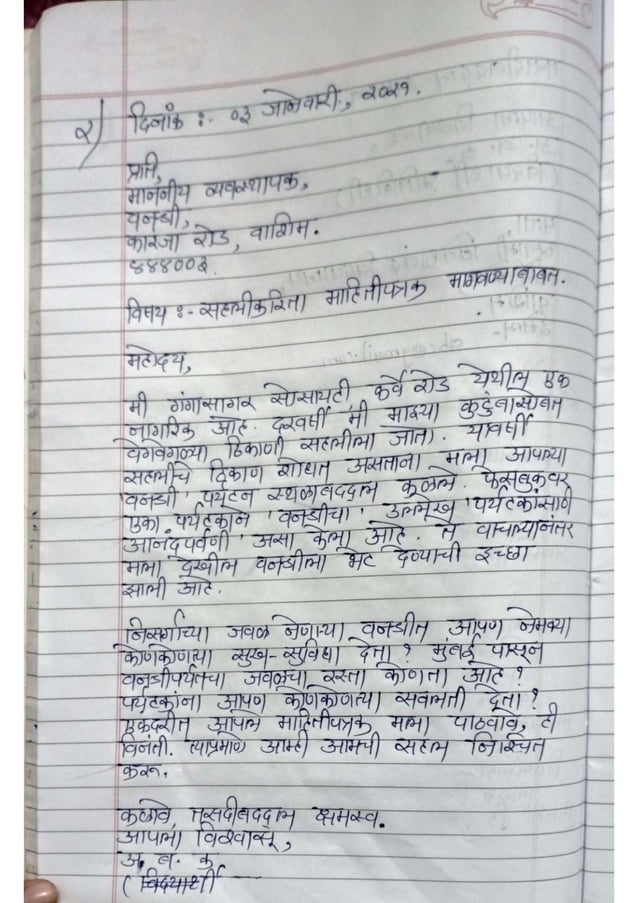 २) दिनांक :- ०३ जानेवारी, २०२१.
प्रति,
माननीय व्यवस्थापक,
वनश्री,
कारंजा रोड, वाशिम.
४४४००३
विषय :- सहलीकरिता माहितीपत्रक मागवण्याबाबत.
महोदय,
मी गंगासागर सोसायटी कर्वे रोड येथील एक
नागरिक आहे. दरवर्षी मी माझ्या कुटुंबासोबत
वेगवेगळ्या ठिकाणी सहलीला जातो. यावर्षी
सहलीचे ठिकाण शोधत असताना मला आपल्या
'वनश्री' पर्यटन स्थळाबददल कळले. फेसबुकवर
एका पर्यटकाने 'वनश्रीचा' उल्लेख 'पर्यटकांसाठी
आनंदपर्वणी' असा केला आहे. ते वाचल्यानंतर
मला देखील वनश्रीला भेट देण्याची इच्छा
झाली आहे.
निसर्गाच्या जवळ नेणाऱ्या वनश्रीत आपण नेमक्या
कोणकोणत्या सुख-सुविधा देता? मुंबई पासून
वनश्रीपर्यंतचा जवळचा रस्ता कोणता आहे?
पर्यटकांना आपण कोणकोणत्या सवलती देता?
एकंदरीत आपले माहितीपत्रक मला पाठवावे, ही
विनंती. त्याप्रमाणे आम्ही आमची सहल निश्चित
करू.
कळावे, तसदीबददल क्षमस्व.
आपला विश्वासू,
अ. ब. क
(विद्यार्थी